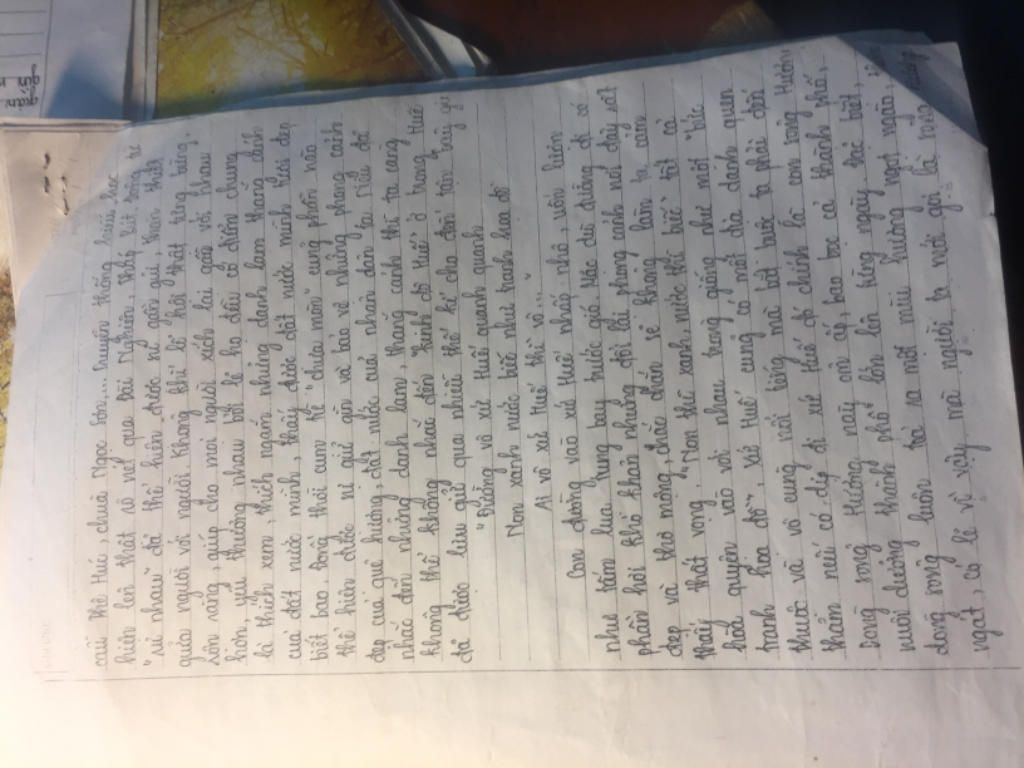 cầu Thê Húc, chùa Ngọc Sơn,... Truyền thống hiếu học
hiện lên thật rõ nét qua Đài Nghiên, Tháp Bút song từ
"rủ nhau" đã thể hiện được sự gần gũi, thân thiết
giữa người với người. Không khí lễ hội thật tưng bừng,
rộn ràng, giúp cho mọi người xích lại gần với nhau
hơn, yêu thương nhau bởi lẽ họ đều có điểm chung
là thích xem, thích ngắm những danh lam thắng cảnh
của đất nước mình, thấy được đất nước mình tươi đẹp
biết bao. Đồng thời cụm từ "chưa mòn" cũng phần nào
thể hiện được sự giữ gìn và bảo vệ những phong cảnh
đẹp của quê hương, đất nước của nhân dân ta. Nếu đã
nhắc đến những danh lam, thắng cảnh thì ta cũng
không thể không nhắc đến "kinh đô Huế" ở trong Huế
đã được lưu giữ qua nhiều thế kỉ cho đến tận bây giờ
"Đường vô xứ Huế quanh quanh
Non xanh nước biếc như tranh họa đồ
Ai vô xứ Huế thì vô..."
Con đường vào xứ Huế nhấp nhô, uốn lượn
như tấm lụa tung bay trước gió. Mặc dù đường đi có
phần hơi khó khăn nhưng đổi lại phong cảnh nơi đây rất
đẹp và thơ mộng, chắc chắn sẽ không làm ta cảm
thấy thất vọng. "Non thì xanh, nước thì biếc" tất cả
hoà quyện vào với nhau trong giống như một "bức
tranh họa đồ". Xứ Huế cũng có một địa danh quen
thuộc và vô cùng nổi tiếng mà bắt buộc ta phải đến
thăm nếu có dịp đi xứ Huế đó chính là con sông Hương.
Dòng sông Hương này ôm ấp, bao bọc cả thành phố,
nuôi dưỡng thành phố lớn lên từng ngày. Đặc biệt,
dòng sông luôn toả ra một mùi hương ngọt ngào,
ngát, có lẽ vì vậy mà người ta mới gọi là sông